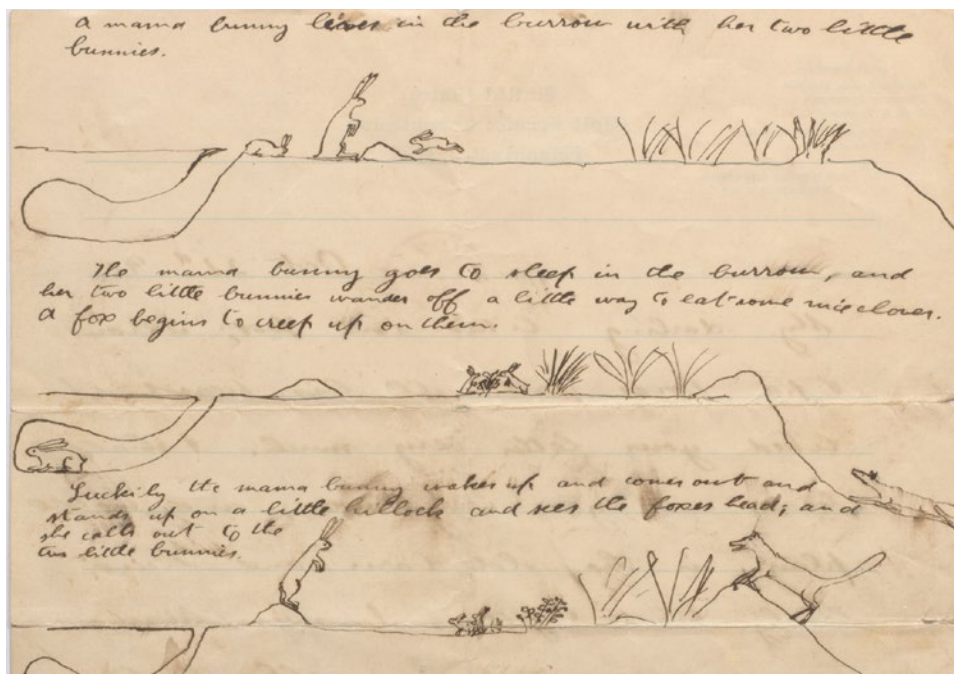 A mama bunny lives in the burrow with her two little
bunnies.
The mama bunny goes to sleep in the burrow, and
her two little bunnies wander off a little way to eat some nice clover.
A fox begins to creep up on them.
Luckily the mama bunny wakes up and comes out and
stands up on a little hillock and sees the foxes head; and
she calls out to the
two little bunnies.